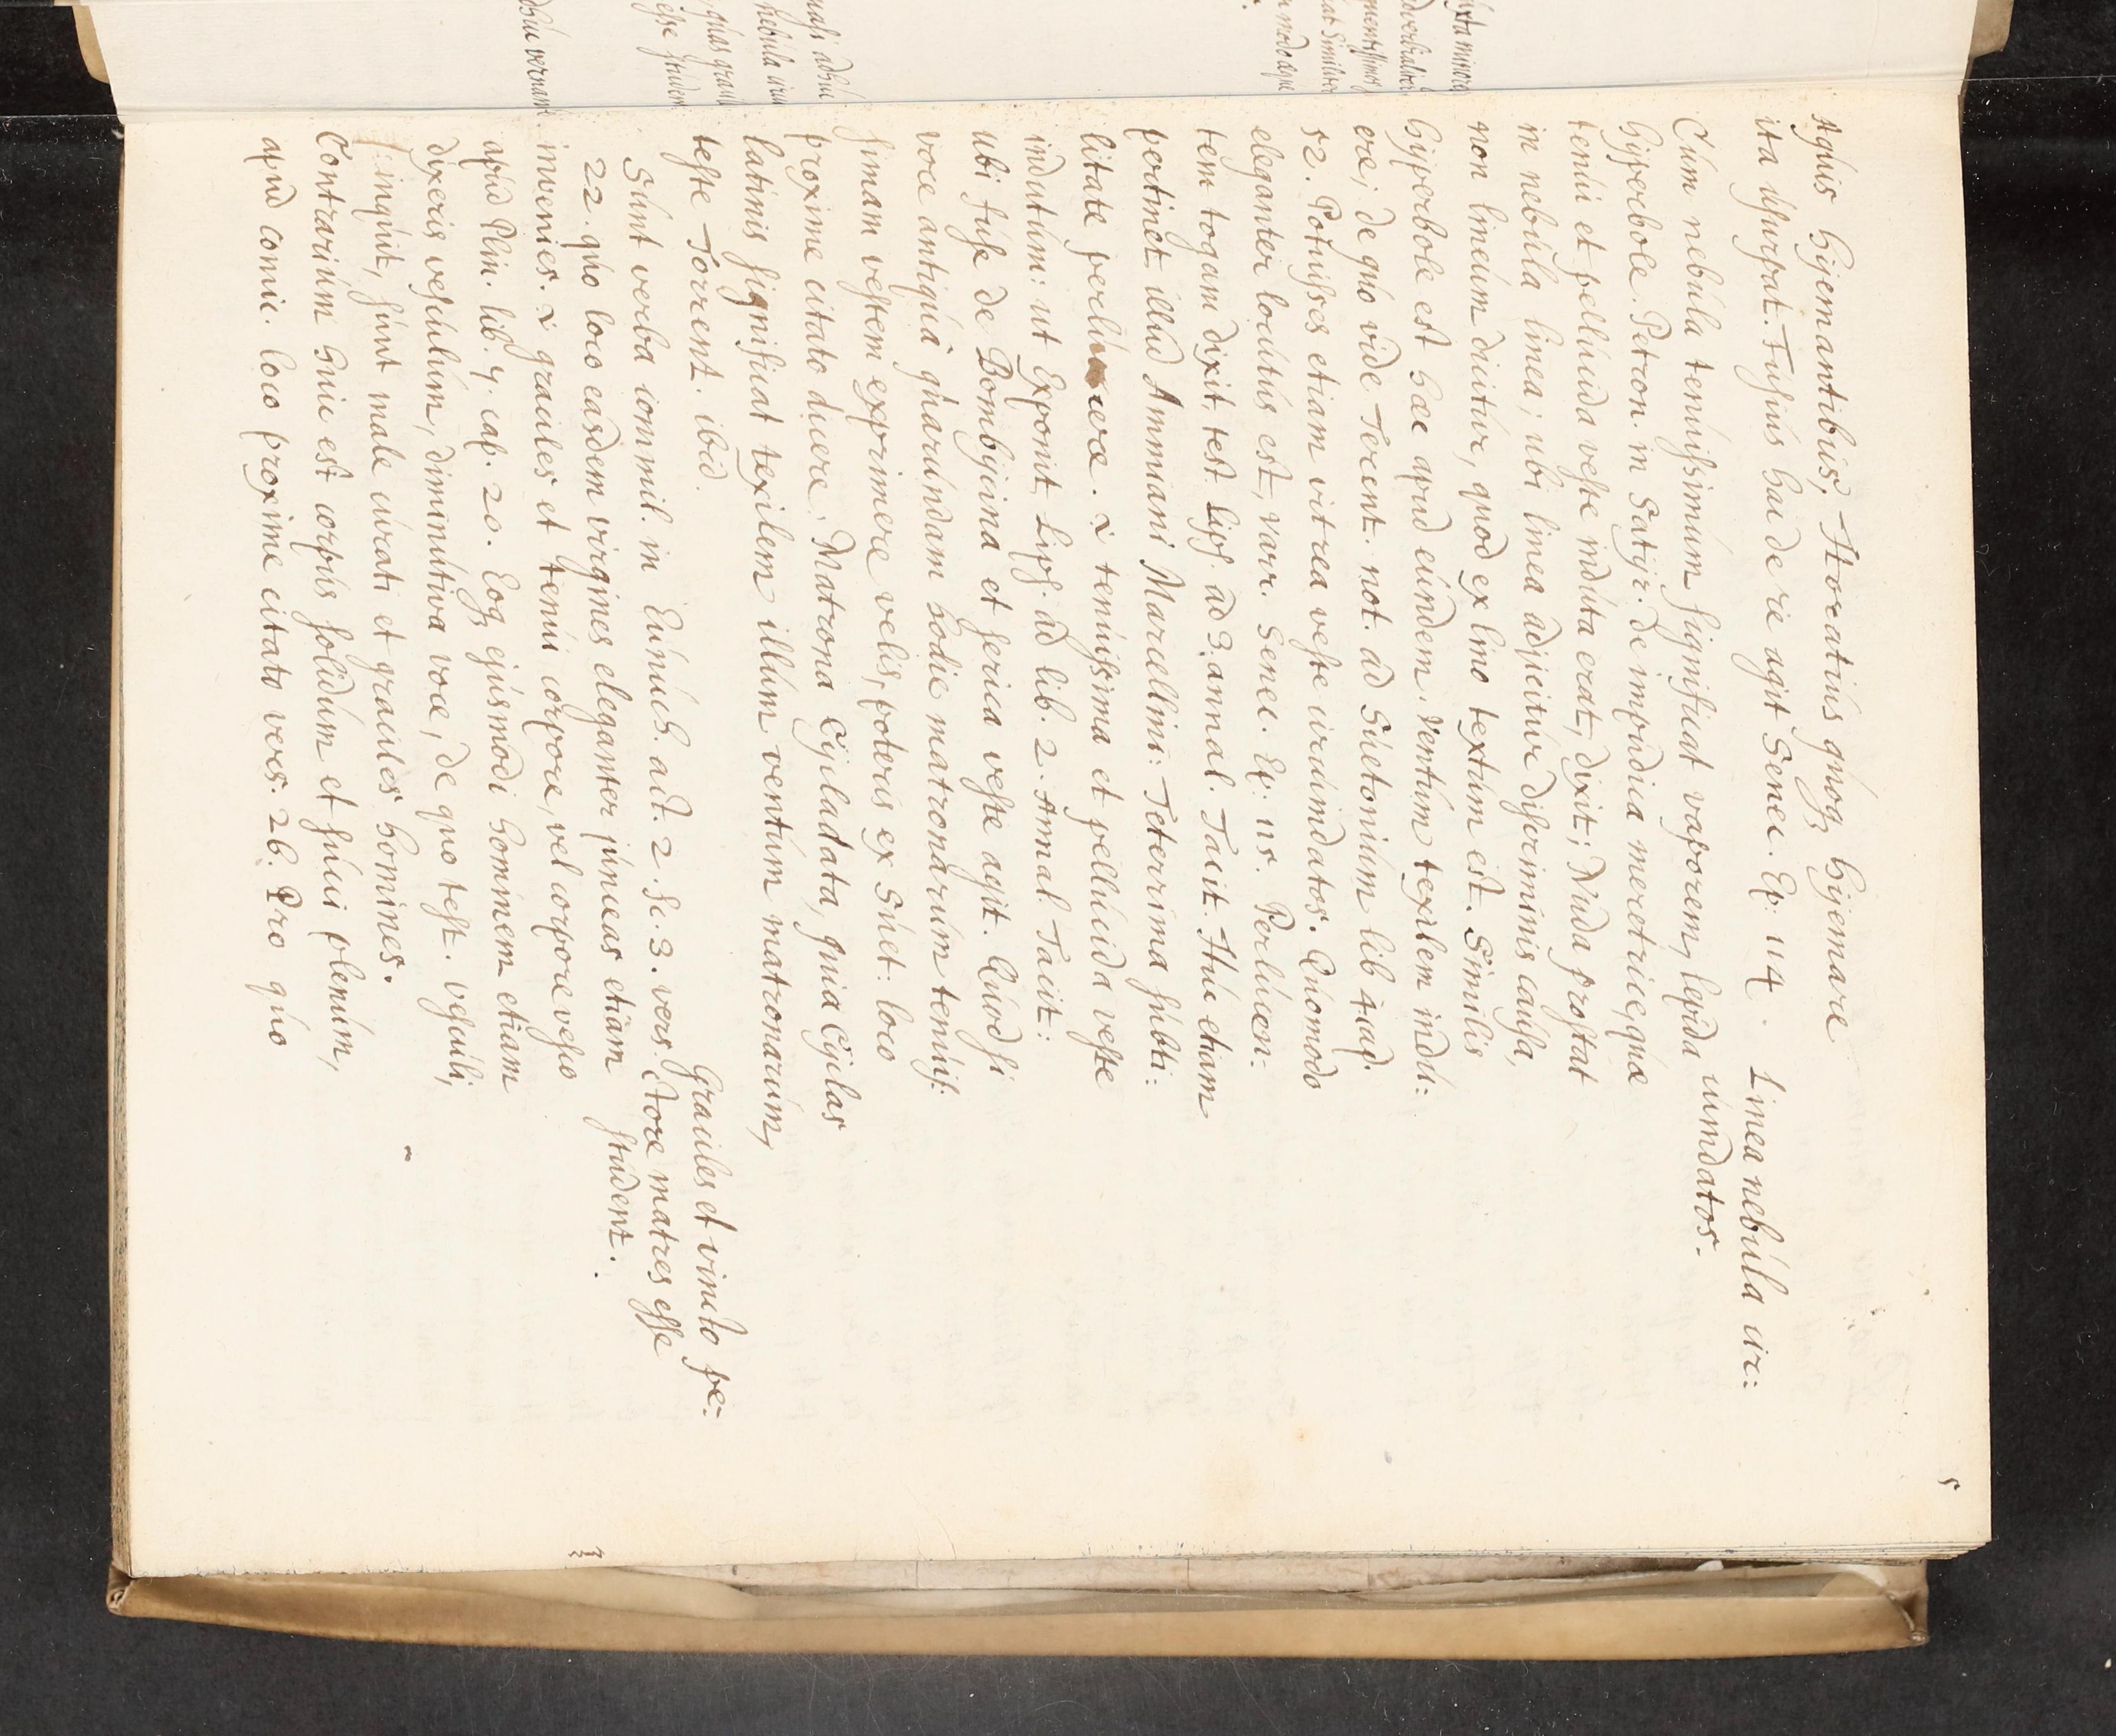 5
Aquis hijemantibus, Horatius quoq; hijemare
ita usurpat. Fusius hac de re agit Senec. Ep. 114.
Linea nebula cir:
cumdatos.
Cum nebula tenuissimum significat vaporem, lepida
hijperbole. Petron. in Satijr. de impudica meretrice, quæ
tenui et pellucida veste induta erat, dixit; Nuda prostat
in nebula linea; ubi linea adjicitur discriminis causa,
non lineum dicitur, quod ex lino textum est. Similis
hijperbole est hæc apud eundem. Ventum textilem indu:
ere; de quo vide Torrent. not. ad Suetonium lib 4 cap.
52. Potuisses etiam vitrea veste circumdatos. Quomodo
eleganter locutus est, Varr. Senec. Ep. 115. Perlucen:
tem togam dixit, test. Lips. ad 3. annal. Tacit. Huc etiam
pertinet illud Ammiani Marcellini: Teterrima subti:
litate perlucere. i tenuissima et pellucida veste
indutum: ut Exponit Lips. ad lib. 2. Annal. Tacit:
ubi fuse de Bombijcina et serica veste agit. Quod si
voce antiqua quarundam hodie matronarum tenuis:
simam vestem exprimere velis, poteris ex Suet: loco
proxime citato dicere, Matrona Cijcladata, quia Cijclas
latinis significat texilem illum ventum matronarum,
teste Torrent. ibid.
Graciles et vincto pe:
ctore matres esse
student.
Sunt verba commil. in Eunuch. act. 2. sc. 3. vers.
22. quo loco easdem virgines eleganter junceas etiam
invenies. i graciles et tenui corpore, vel corpore vesco
apud Plin. lib. 7. cap. 20. Eoq; ejusmodi hominem etiam
dixeris vesculum, diminutiva voce, de quo test. vesculi,
inquit, sunt male curati et graciles homines.
Contrarium huic est corpus solidum et succi plenum,
apud comic. loco proxime citato vers. 26. Pro quo